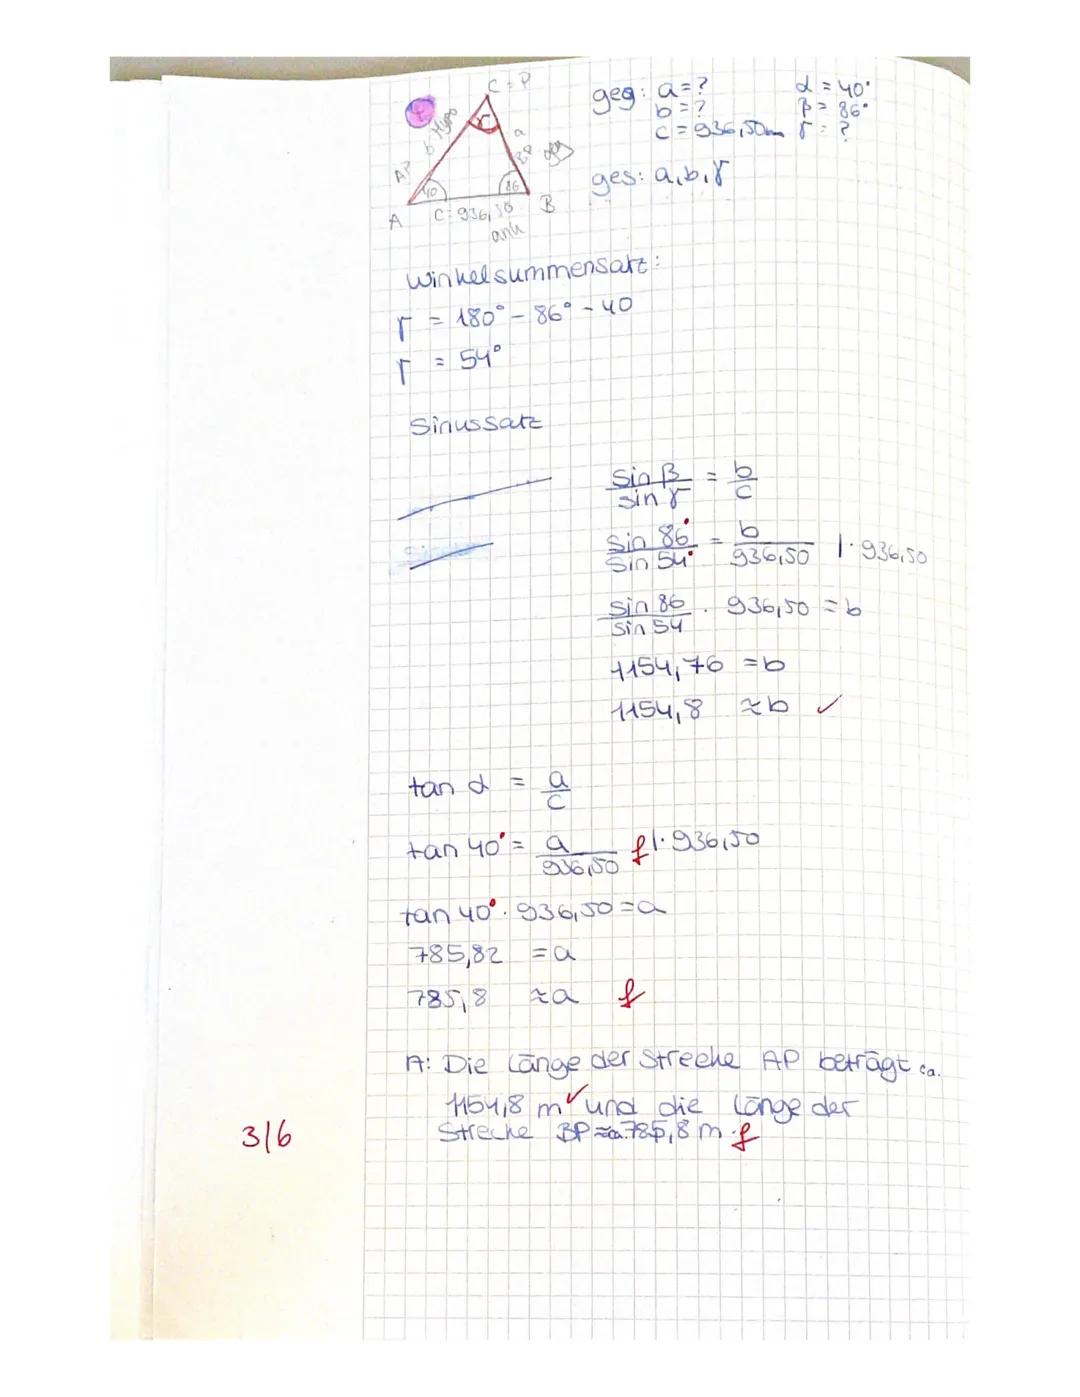 C = P
geg: a = ? α = 40°
b = ? β = 86°
c = 936,50m γ = ?
ges: a, b, γ
b Hypo
a
geg
AP
40
86
A C = 936,50 B
anh
Winkelsummensatz:
γ = 180° - 86° - 40
γ = 54°
Sinussatz
sin β / sin γ = b / c
sin 86° / sin 54° = b / 936,50 | · 936,50
sin 86 / sin 54 · 936,50 = b
1154,76 = b
1154,8 ≈ b ✓
tan α = a / c
tan 40° = a / 936,50 f | · 936,50
tan 40° · 936,50 = a
785,82 = a
785,8 ≈ a f
A: Die Länge der Strecke AP beträgt ca.
1154,8 m ✓ und die Länge der
Strecke BP ≈ 785,8 m. f
3/6